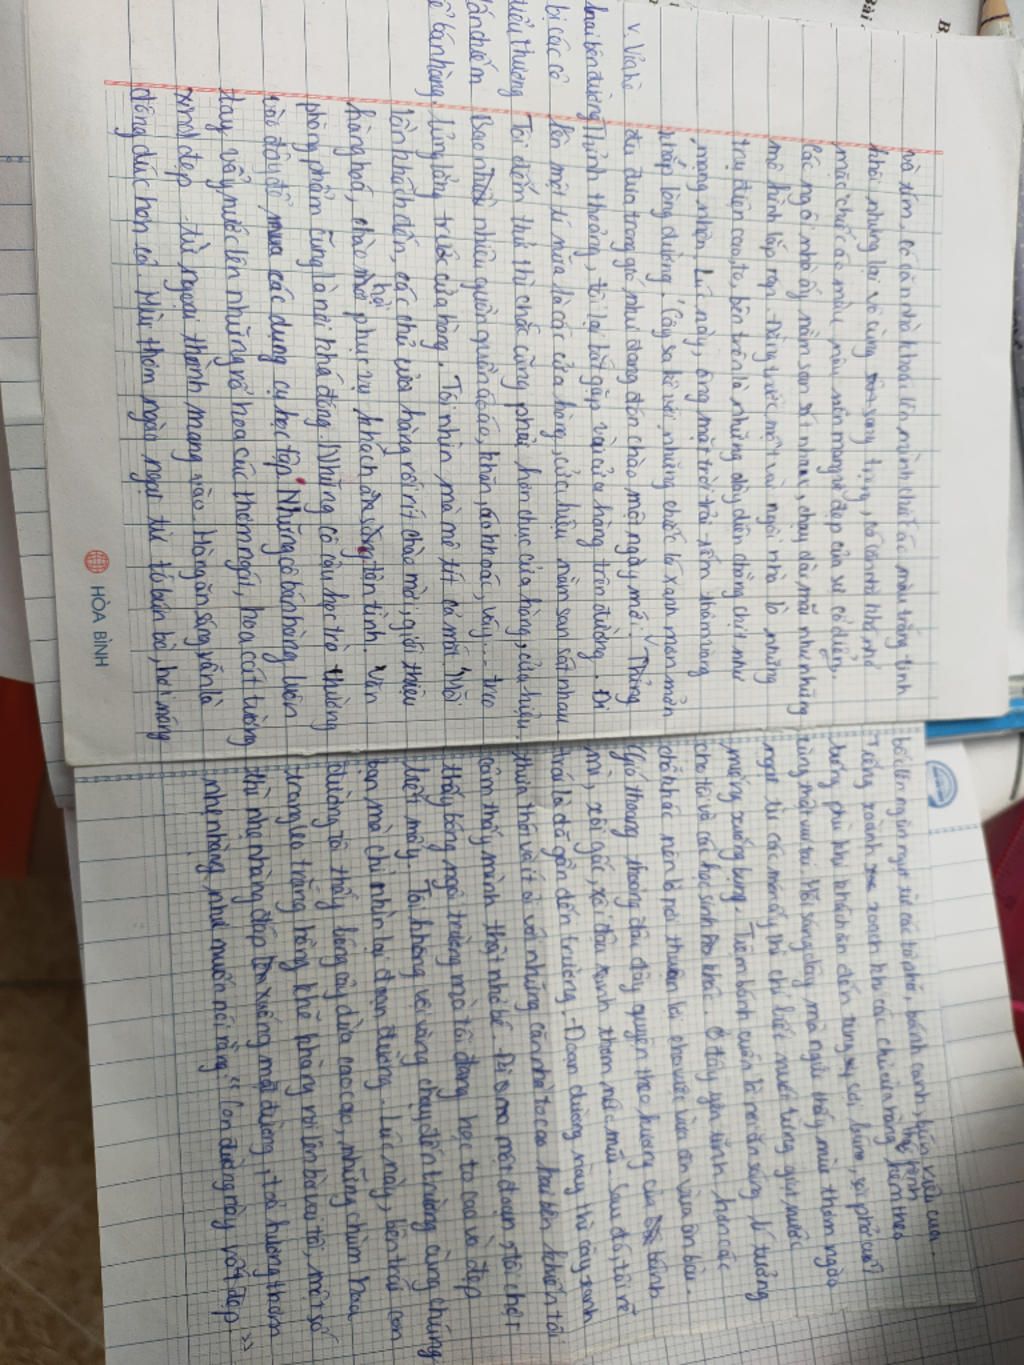 và xám, có căn nhà khoác lên mình chiếc áo màu trắng tinh
khôi, nhưng lại vô cùng sang trọng, có căn nhà thì nhớ
mặc chiếc áo màu nâu nên mang vẻ đẹp của sự cổ điển,
các ngôi nhà ấy nằm san sát nhau, chạy dài mãi như những
mô hình lắp ráp. Đứng trước một vài ngôi nhà là những
trụ điện cao to, bên trên là những dây điện chằng chịt như
mạng nhện. Lúc này, ông mặt trời trải nắng thảm vàng
khắp lòng đường. Cây xa kề với những chiếc lá xanh mơn mởn
đu đưa trong gió như đang đón chào một ngày mới. V Thỉnh
V. Vỉa hè
hai bên đường
bị các cô
tiểu thương
lấn chiếm
để bán hàng.
Thỉnh thoảng, tôi lại bắt gặp vài cửa hàng trên đường. Đi
lên một tí nữa là các cửa hàng, cửa hiệu nằm san sát nhau.
Tôi đếm thử thì chắc cũng phải hơn chục cửa hàng, cửa hiệu.
Bao nhiêu quần áo, khăn, áo khoác, váy... treo
lủng lẳng trước cửa hàng. Tôi nhìn mà mê tít cả mắt. Mỗi
lần khách đến, các chủ cửa hàng rối rít chào mời, giới thiệu
hàng hoá, chào mời phục vụ khách hàng tận tình. Văn
phòng phẩm cũng là nơi khá đông. Những cô cậu học trò thường
vào đây để mua các dụng cụ học tập. Những cô bán hàng luôn
tay vẩy nước lên những rổ hoa cúc thơm ngát, hoa cát tường
xinh đẹp từ ngoại thành mang vào. Hàng ăn sáng vẫn là
đông đúc hơn cả. Mùi thơm ngào ngạt từ tô bún bò, hơi nóng
HÒA BÌNH
bốc lên nghi ngút từ các tô phở, bánh canh, bún riêu cua.
Tiếng xoành xoạch khi các chủ cửa hàng
lượng phù khi khách ăn đến từng sợi bún, sợi phở cuối
cùng thật vui tai. Mỗi sáng dậy mà ngửi thấy mùi thơm ngào
ngạt từ các món ấy thì chỉ biết nuốt từng giọt nước
miếng xuống bụng. Tiệm bánh cuốn là nơi ăn sáng lí tưởng
cho tôi và các học sinh khác. Ở đây yên tĩnh hơn các
chỗ khác nên là nơi thuận lợi cho việc vừa ăn vừa ôn bài.
Gió thoang thoảng đâu đây quyện theo hương của bánh
mì, xôi gấc, xôi đậu xanh thơm nức mũi. Sau đó, tôi rẽ
trái là đã gần đến trường. Đoạn đường này thì cây xanh
thưa thớt và ít ỏi với những căn nhà to cao hai bên khiến tôi
cảm thấy mình thật nhỏ bé. Đi một đoạn, tôi chợt
thấy bóng ngôi trường mà tôi đang học to cao và đẹp
biết mấy. Tôi không vội vàng chạy đến trường cùng chúng
bạn mà chỉ nhìn lại đoạn đường. Lúc này, bên trái con
đường tôi thấy bóng cây dừa cao cao, những chùm hoa
trang leo trắng hồng khẽ khàng rơi lên bờ vai tôi, một số
thì nhẹ nhàng đáp xuống mặt đường, toả hương thơm
nhẹ nhàng như muốn nói rằng: "Con đường này rất đẹp."